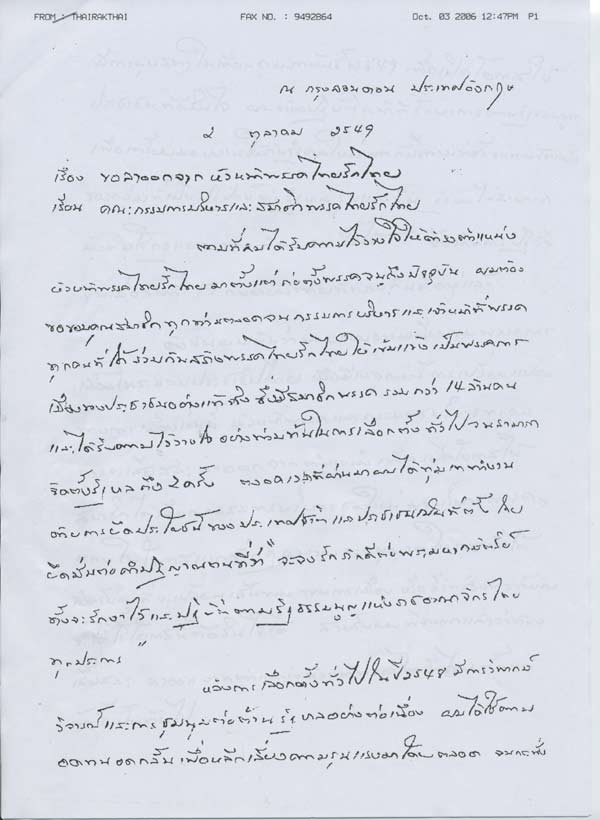 FROM : THAIRAKTHAI FAX NO. : 9492864 Oct. 03 2006 12:47PM P1
ณ กรุงลอนดอน ประเทศอังกฤษ
๒ ตุลาคม 2549
เรื่อง ขอลาออกจากหัวหน้าพรรคไทยรักไทย
เรียน คณะกรรมการบริหารและสมาชิกพรรคไทยรักไทย
ตามที่ผมได้รับความไว้วางใจให้ดำรงตำแหน่ง
หัวหน้าพรรคไทยรักไทยมาตั้งแต่ก่อตั้งพรรคจนถึงปัจจุบัน ผมต้อง
ขอขอบคุณสมาชิกทุกท่านตลอดจนกรรมการบริหารและเจ้าหน้าที่พรรค
ทุกคนที่ได้ร่วมกันสร้างพรรคไทยรักไทยให้เข้มแข็ง เป็นพรรคการ
เมืองของประชาชนอย่างแท้จริง ซึ่งมีสมาชิกพรรครวมกว่า 14 ล้านคน
และได้รับความไว้วางใจอย่างท่วมท้นในการเลือกตั้งทั่วไปจนสามารถ
จัดตั้งรัฐบาลถึง 2 ครั้ง ตลอดเวลาที่ผ่านมาผมได้ทุ่มเททำงาน
ด้วยการยึดประโยชน์ของประเทศชาติและประชาชนเป็นที่ตั้ง โดย
ยึดมั่นต่อคำปฏิญาณตนที่ว่า "จะจงรักภักดีต่อพระมหากษัตริย์
ทั้งจะรักษาไว้และปฏิบัติตามรัฐธรรมนูญแห่งราชอาณาจักรไทย
ทุกประการ"
หลังการเลือกตั้งทั่วไปในปี 2548 มีการวิพากษ์
วิจารณ์และการชุมนุมต่อต้านรัฐบาลอย่างต่อเนื่อง ผมได้ใช้ความ
อดทนอดกลั้นเพื่อหลีกเลี่ยงความรุนแรงมาโดยตลอด จนกระทั่ง